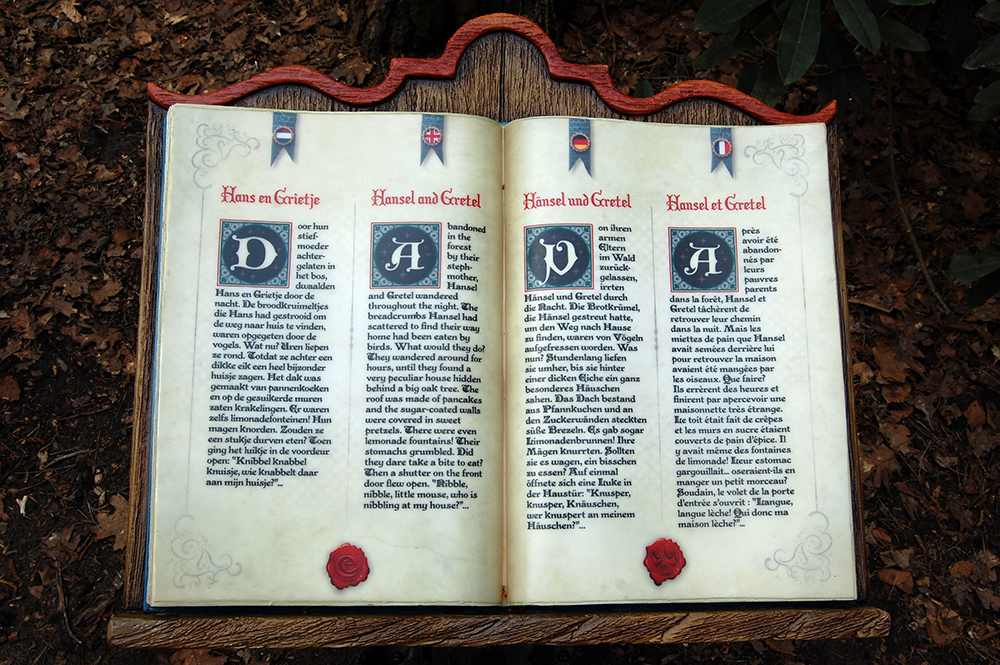 Hans en Grietje
Door hun
stief-
moeder
achter-
gelaten in
het bos,
dwaalden
Hans en Grietje door de
nacht. De broodkruimeltjes
die Hans had gestrooid om
de weg naar huis te vinden,
waren opgegeten door de
vogels. Wat nu? Uren liepen
ze rond. Totdat ze achter een
dikke eik een heel bijzonder
huisje zagen. Het dak was
gemaakt van pannenkoeken
en op de gesuikerde muren
zaten krakelingen. Er waren
zelfs limonadefonteinen! Hun
magen knorden. Zouden ze
een stukje durven eten? Toen
ging het luikje in de voordeur
open: "Knibbel knabbel
knuisje, wie knabbelt daar
aan mijn huisje?"...
Hansel and Gretel
Abandoned
in the
forest
by their
steph-
mother,
Hansel
and Gretel wandered
throughout the night. The
breadcrumbs Hansel had
scattered to find their way
home had been eaten by
birds. What would they do?
They wandered around for
hours, until they found a
very peculiar house hidden
behind a big oak tree. The
roof was made of pancakes
and the sugar-coated walls
were covered in sweet
pretzels. There were even
lemonade fountains! Their
stomachs grumbled. Did
they dare take a bite to eat?
Then a shutter on the front
door flew open. "Nibble,
nibble, little mouse, who is
nibbling at my house?"...
Hänsel und Gretel
Von ihren
armen
Eltern
im Wald
zurück-
gelassen,
irrten
Hänsel und Gretel durch
die Nacht. Die Brotkrümel,
die Hänsel gestreut hatte,
um den Weg nach Hause
zu finden, waren von Vögeln
aufgefressen worden. Was
nun? Stundenlang liefen
sie umher, bis sie hinter
einer dicken Eiche ein ganz
besonderes Häuschen
sahen. Das Dach bestand
aus Pfannkuchen und an
den Zuckerwänden steckten
süße Brezeln. Es gab sogar
Limonadenbrunnen! Ihre
Mägen knurrten. Sollten
sie es wagen, ein bisschen
zu essen? Auf einmal
öffnete sich eine Luke in
der Haustür: "Knusper,
knusper, Knäuschen,
wer knuspert an meinem
Häuschen?"...
Hansel et Gretel
Après
avoir été
abandon-
nés par
leurs
pauvres
parents
dans la forêt, Hansel et
Gretel tâchèrent de
retrouver leur chemin
dans la nuit. Mais les
miettes de pain que Hansel
avait semées derrière lui
pour retrouver la maison
avaient été mangées par
les oiseaux. Que faire?
Ils errèrent des heures et
finirent par apercevoir une
maisonnette très étrange.
Le toit était fait de crêpes
et les murs en sucre étaient
couverts de pain d'épice. Il
y avait même des fontaines
de limonade! Leur estomac
gargouillait... oseraient-ils en
manger un petit morceau?
Soudain, le volet de la porte
d'entrée s'ouvrit : "Langue,
langue lèche! Qui donc ma
maison lèche?"...